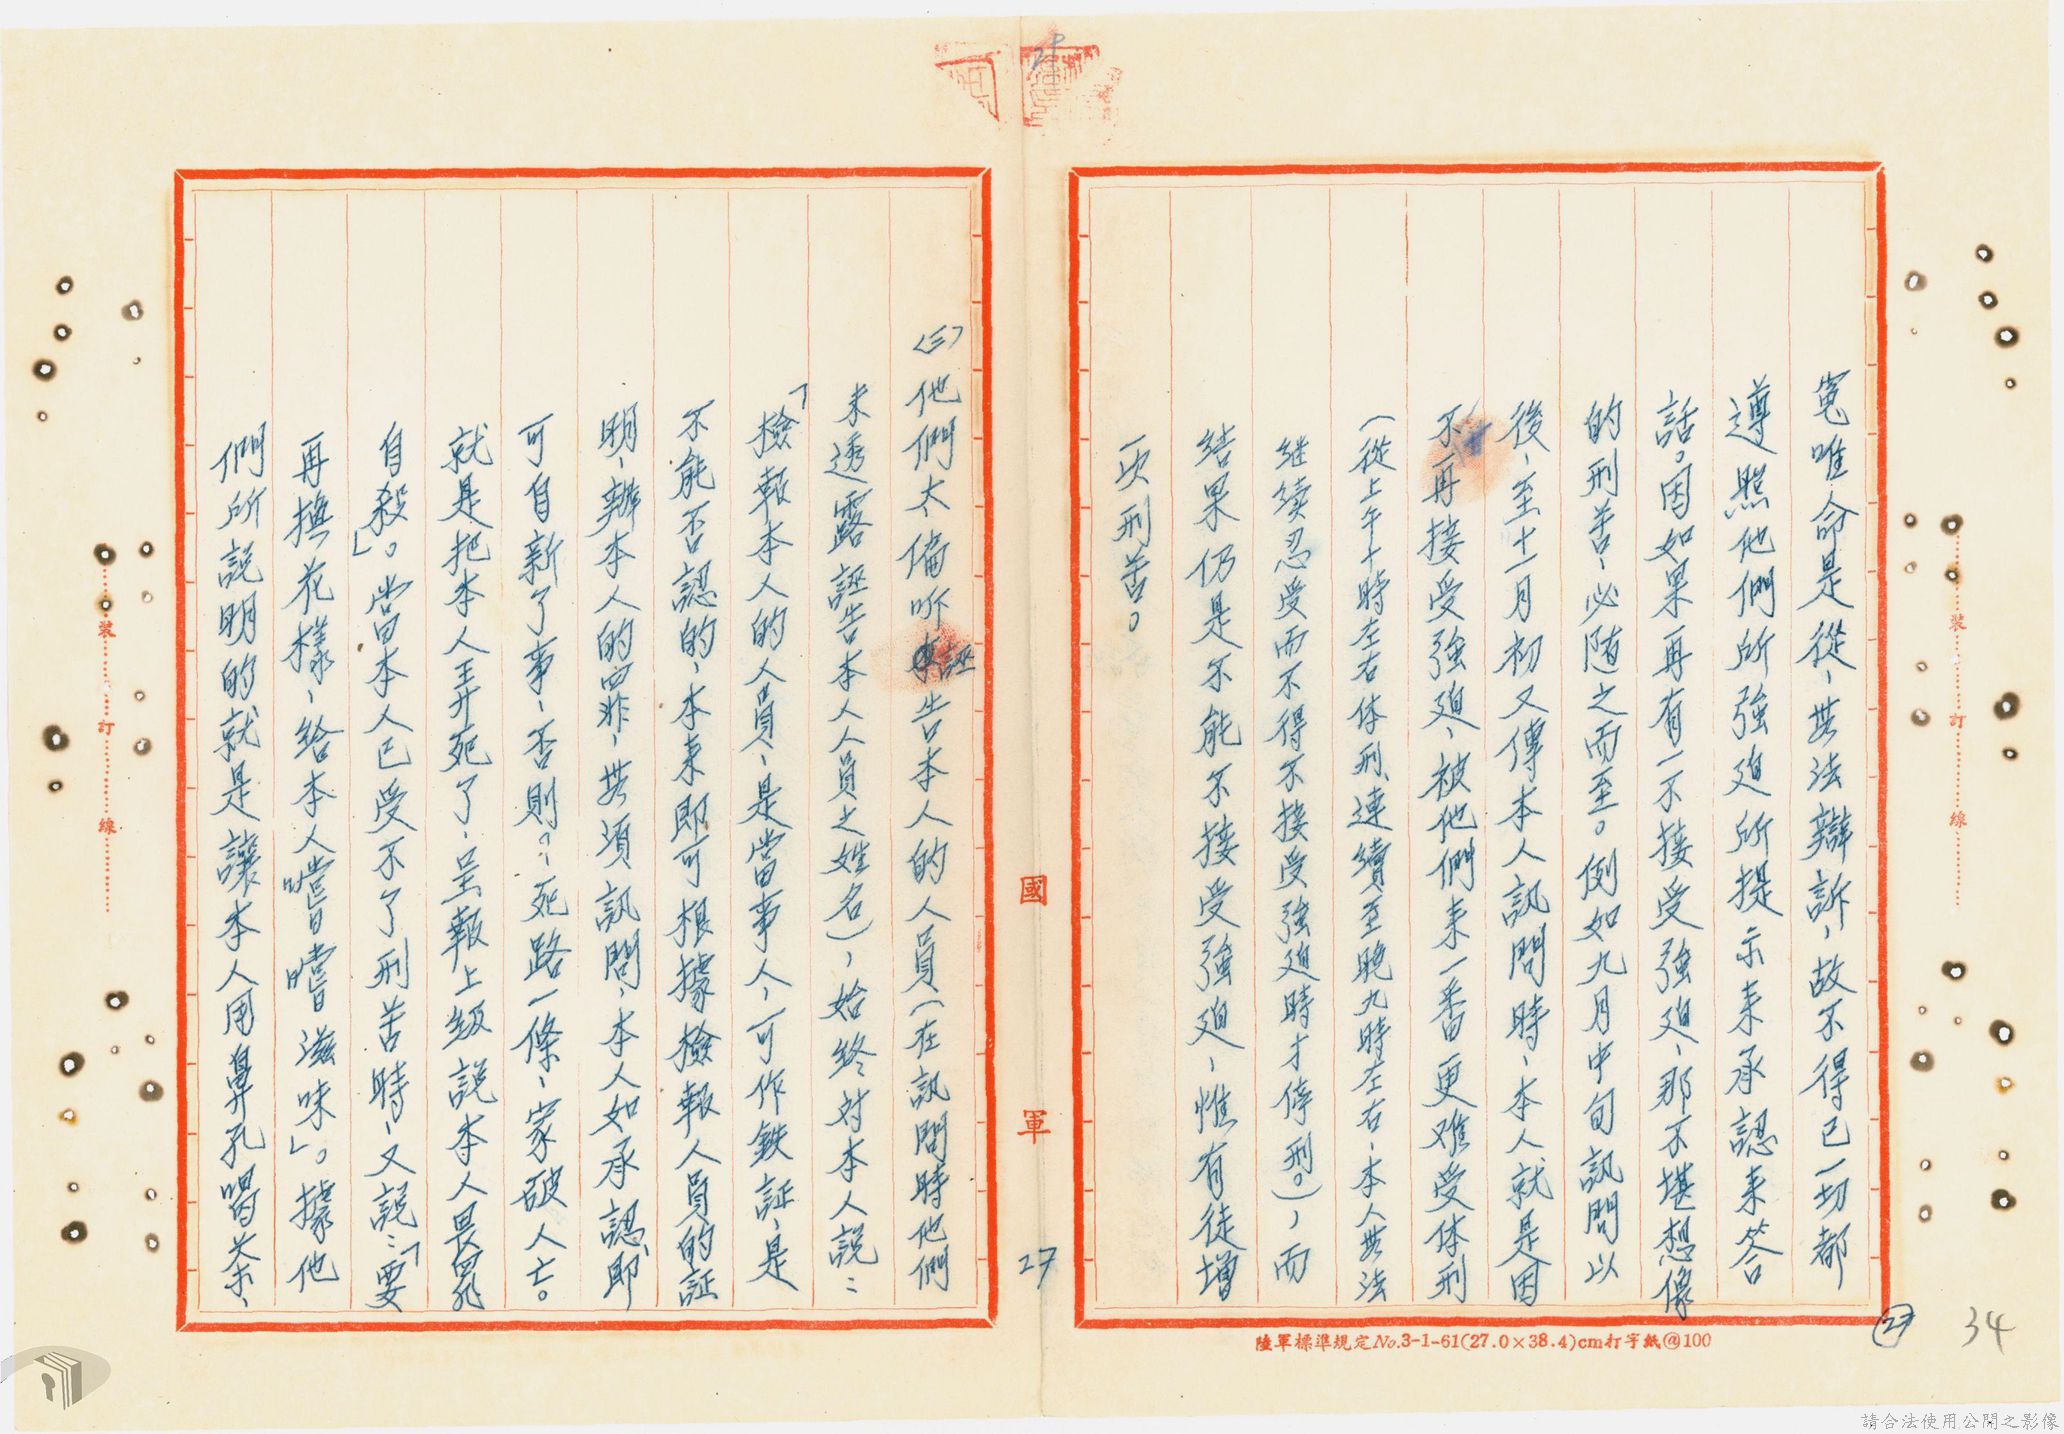 冤唯命是從、無法辯訴，故不得已一切都
遵照他們所強迫所提示来承認来答
話。因如果再有一不接受強迫、那不堪想像
的刑苦、必随之而至。例如九月中旬訊問以
後、至十一月初又傳本人訊問時、本人就是因
不再接受強迫、被他們来一番更难受体刑
(從上午十時左右体刑、連續至晚九時左右、本人無法
継续忍受而不得不接受強迫時才停刑。)，而
结果仍是不能不接受強迫、惟有徒增
一次刑苦。
陸軍標準規定No.3-1-61(27.0×38.4)cm打字紙@100
27
34
國
軍
27
<三>他們太偏听誣告本人的人員(在訊問時他們
未透露誣告本人人員之姓名)，始終对本人說：
「檢報本人的人員、是當事人，可作鉄証、是
不能否認的、本来即可根據檢報人員的証
明、辦本人的罪、無須訊問，本人如承認、即
可自新了事、否則。：死路一條、家破人亡。
就是把本人弄死了、呈報上級說本人畏罪
自殺」。當本人已受不了刑苦時、又說：「要
再換花樣、給本人嚐嚐滋味」。據他
們所說明的就是讓本人用鼻孔喝茶、
裝
訂
線
裝
訂
線
請合法使用公開之影像